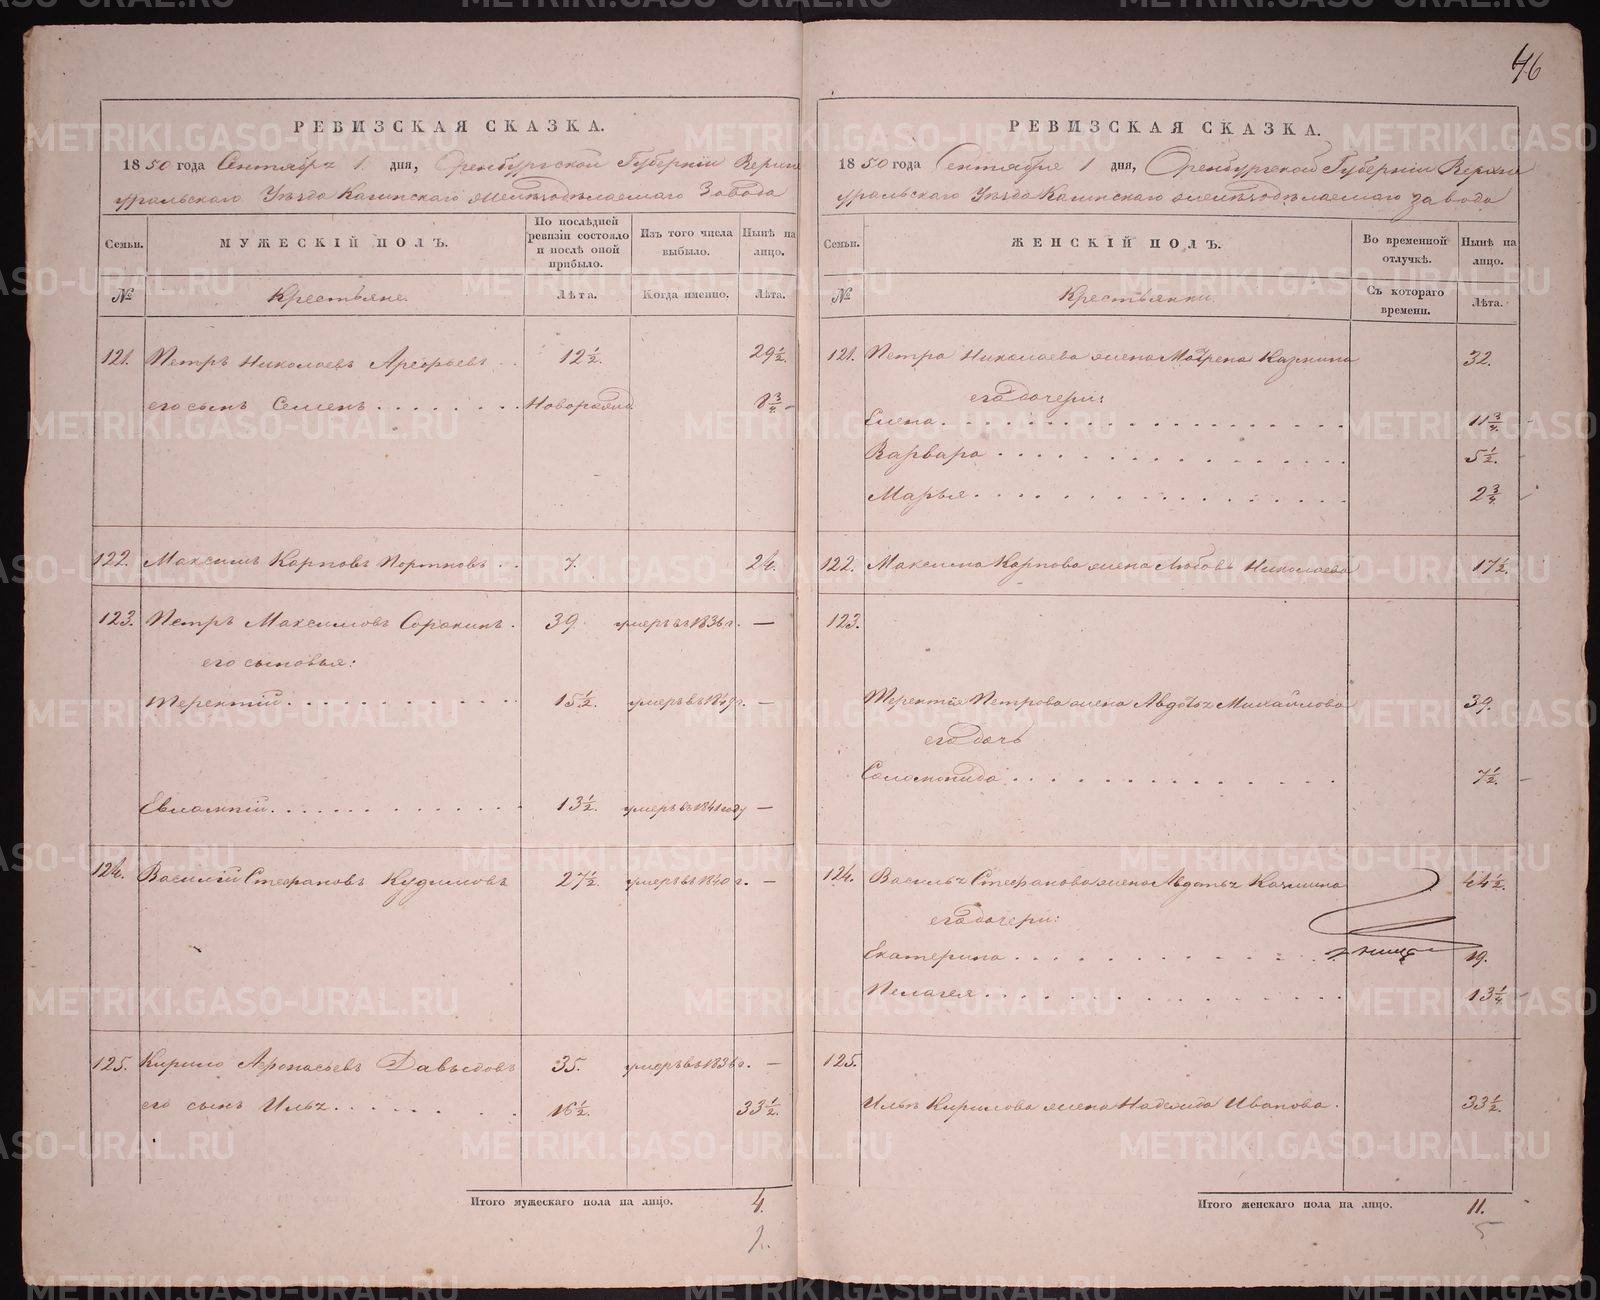 46
РЕВИЗСКАЯ СКАЗКА.
1850 года Сентября 1 дня, Оренбургской Губерніи Верхне
уральскаго Уѣзда Кагинскаго желѣзодѣлаемаго Завода
Семьи. МУЖЕСКІЙ ПОЛЪ. По послѣдней ревизіи состояло и послѣ оной прибыло. Изъ того числа выбыло. Нынѣ на лицо.
№ Крестьяне. Лѣта. Когда именно. Лѣта.
121. Петръ Николаевъ Арефьевъ . . 12½. 29½.
его сынъ Семенъ . . . . . . . . Новорожд. 8¾
122. Максимъ Карповъ Портновъ . . 7. 24.
123. Петръ Максимовъ Сорокинъ . 39. умеръ въ 1836 г. —
его сыновья:
Терентій . . . . . . . . . . . . 15½. умеръ въ 1849 г. —
Евлампій . . . . . . . . . . . . 13½. умеръ въ 1841 году —
124. Василій Стефановъ Кудимовъ 27½. умеръ въ 1840 г. —
125. Кирило Афонасьевъ Давыдовъ 35. умеръ въ 1836 г. —
его сынъ Илья . . . . . . . 16½. 33½.
Итого мужескаго пола на лицо. 4.
2.
РЕВИЗСКАЯ СКАЗКА.
1850 года Сентября 1 дня, Оренбургской Губерніи Верхне
уральскаго Уѣзда Кагинскаго желѣзодѣлаемаго завода
Семьи. ЖЕНСКІЙ ПОЛЪ. Во временной отлучкѣ. Нынѣ на лицо.
№ Крестьянки. Съ котораго времени. Лѣта.
121. Петра Николаева жена Матрена Казмина 32.
его дочери:
Елена . . . . . . . . . . . . . . . . . 11¾.
Варвара . . . . . . . . . . . . . . . 5½.
Марья . . . . . . . . . . . . . . . . 2¾.
122. Максима Карпова жена Любовь Николаева 17½.
123.
Терентія Петрова жена Авдотья Михайлова 39.
его дочь
Соломонида . . . . . . . . . . . . 7½.
124. Василья Стефанова жена Авдотья Казмина 44½.
его дочери:
Екатерина . . . . . . . . . . . . . 19.
Пелагея . . . . . . . . . . . . . . . 13¼.
125.
Ильи Кирилова жена Надежда Иванова . 33½.
Итого женскаго пола на лицо. 11.
5
METRIKI.GASO-URAL.RU